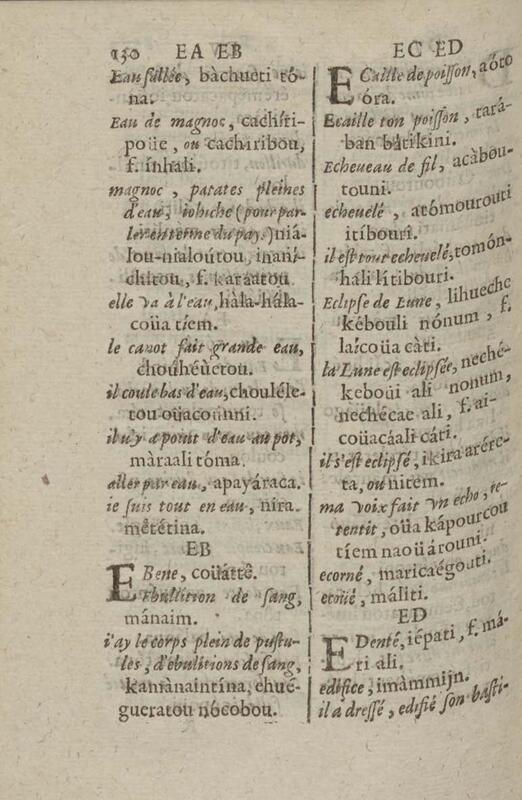 130 EA EB
Eau sallée, bàchueti tó-
na.
Eau de magnoc, cachíri-
poüe, ou cachiribou,
f. ínhali.
magnoc, patates pleines
d'eau, iohuche (pour par-
ler en terme du pays) niá-
lou-nialoútou, inaní-
chitou, f. karáatou
elle va à l'eau, hála-hála-
coüa tíem.
le canot fait grande eau,
chouhéüetou.
il coule bas d'eau, chouléle-
tou oüacoúnni.
il n'y a point d'eau au pot,
màraali tóma.
aller par eau, apayáraca.
ie suis tout en eau, níra
mététina.
EB
EBene, coüátté.
Ebullition de sang,
mánaim.
i'ay le corps plein de pustu-
les, d'ébulitions de sang,
kamànaintína, chué-
gueratou nócobou.
EC ED
ECaille de poisson, aóto
óra.
Ecaille ton poisson, tará-
ban bátikini.
Echeveau de fil, acàbou-
touni.
echeuelé, atómourouti
itíbouri.
il est tout echeuelé, tomón-
háli lítibouri.
Eclipse de Lune, lihueche
kébouli nónum, f.
laícoüa càti.
la Lune est eclipsée, neché-
keboüi ali nonum,
nechécae ali, f. ai-
coüacáali cáti.
il s'est eclipsé, ikira arére-
ta, ou nitem.
ma voix fait vn echo, re-
tentit, oüa kápourcou
tíem naoüárouni.
ecorné, maricaégouti.
ecoüé, máliti.
ED
EDenté, iépati, f. má-
ri ali.
edifice, imàmmijn.
il a dressé, edifié son basti-